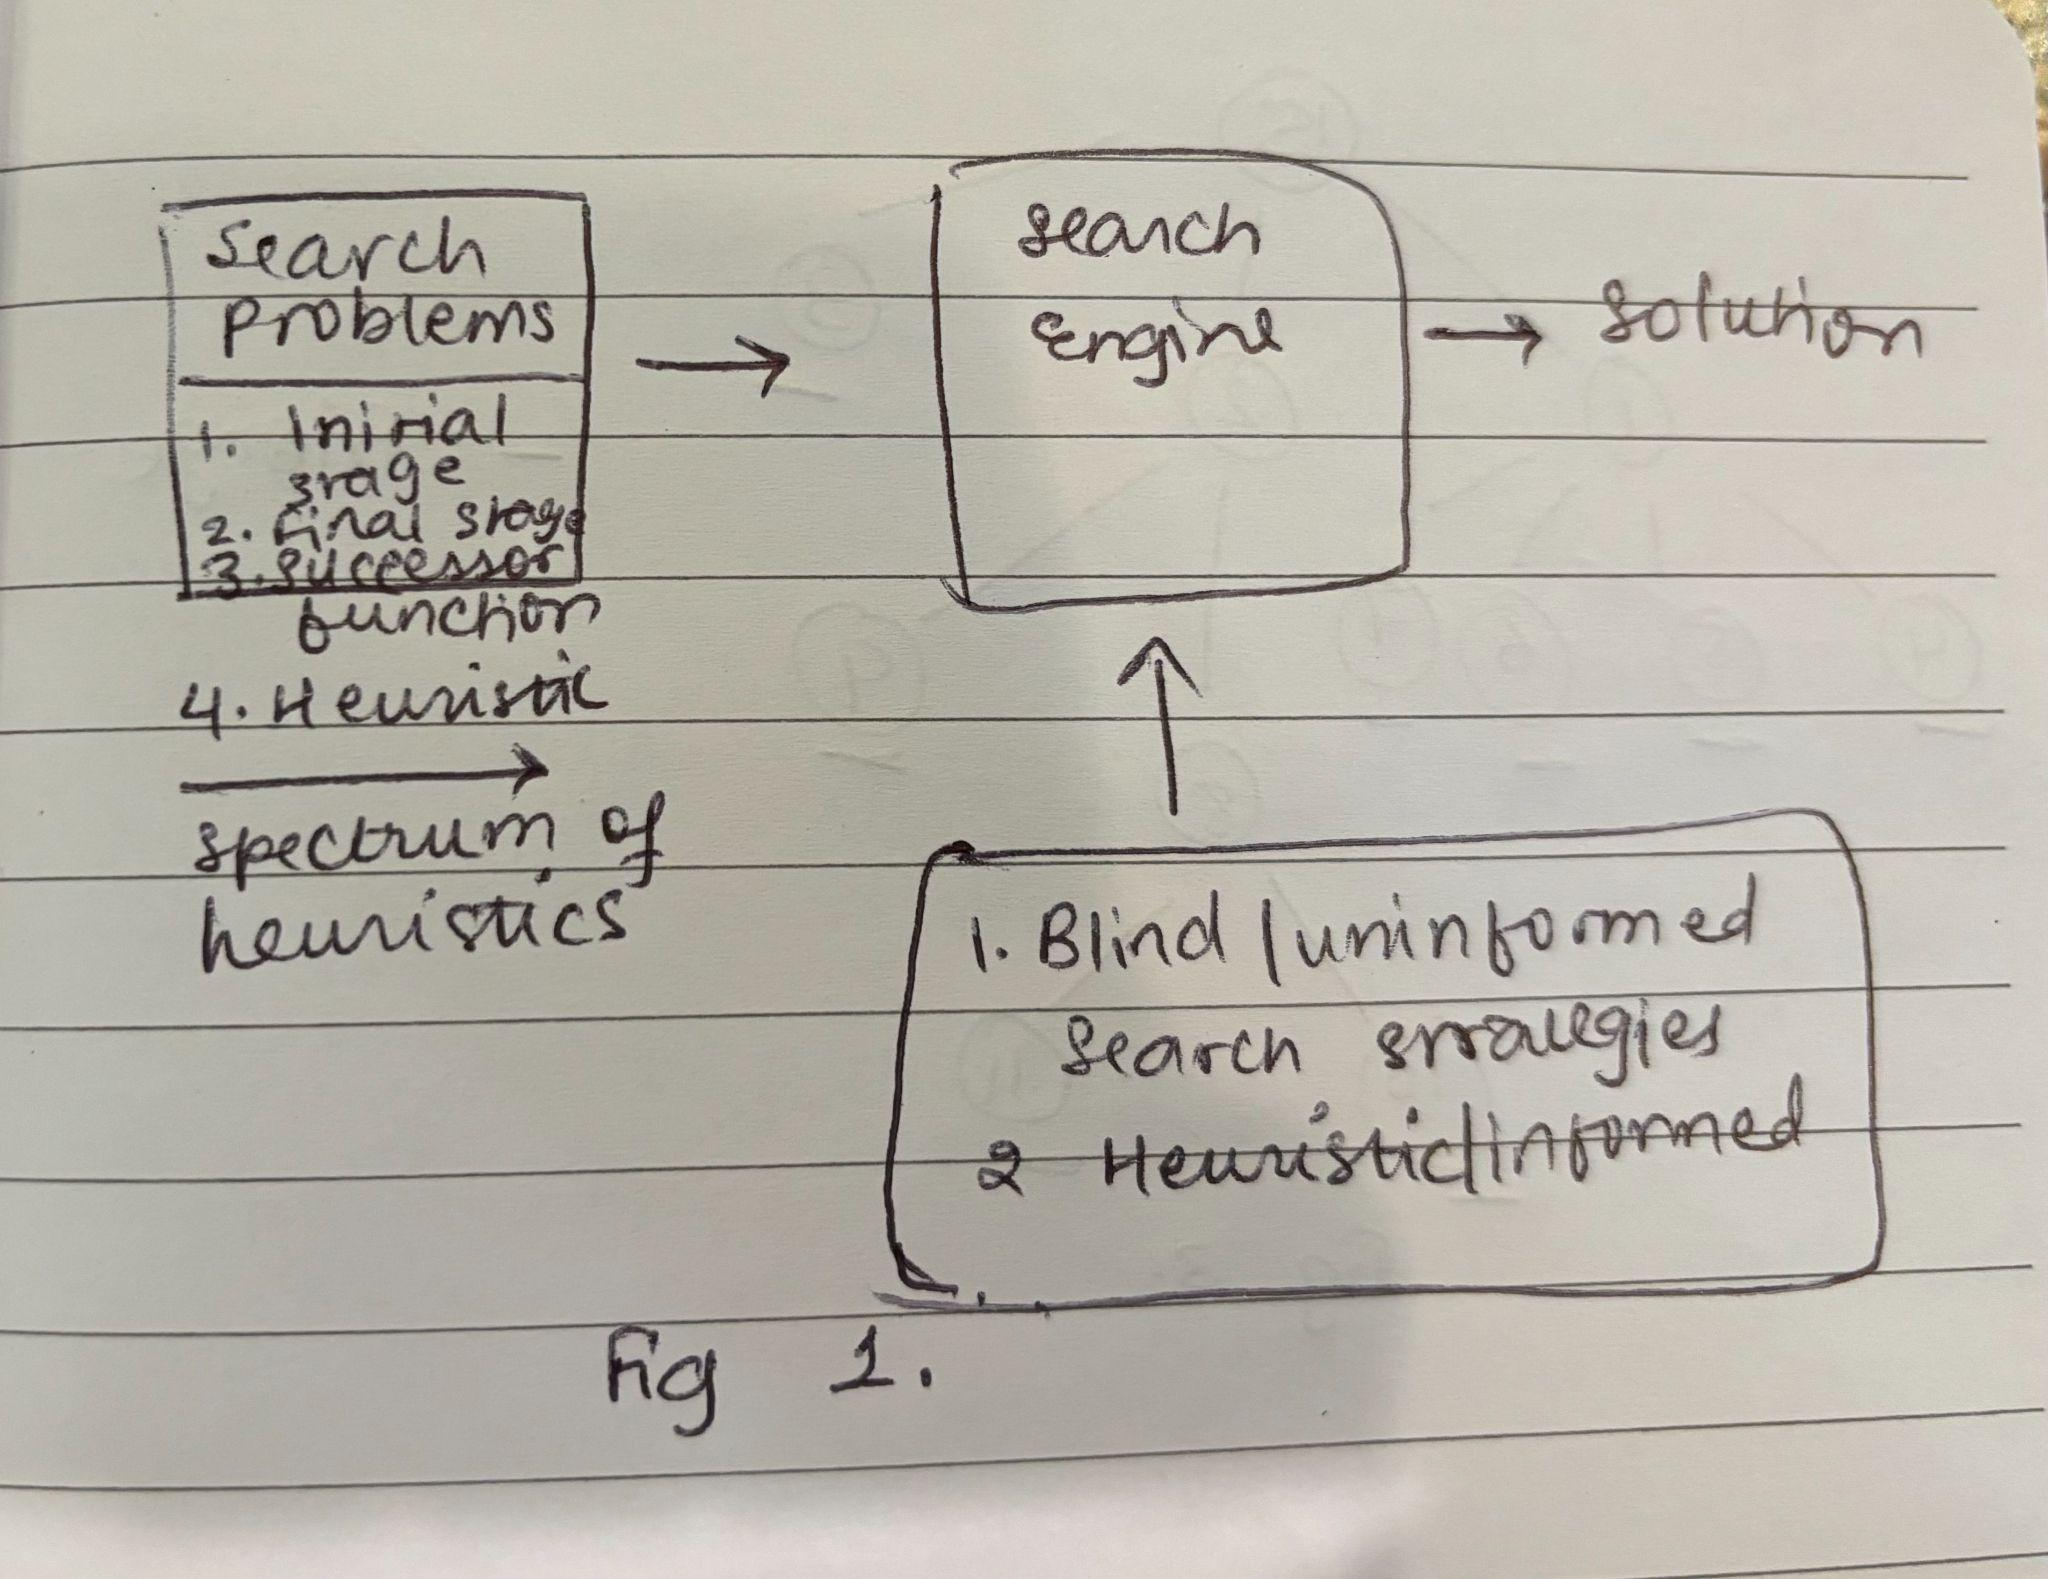 Search
Problems
1. Initial
stage
2. Final stage
3. Successor
function
4. Heuristic
spectrum of
heuristics
Search
Engine
Solution
1. Blind / uninformed
Search strategies
2 Heuristic/informed
Fig 1.